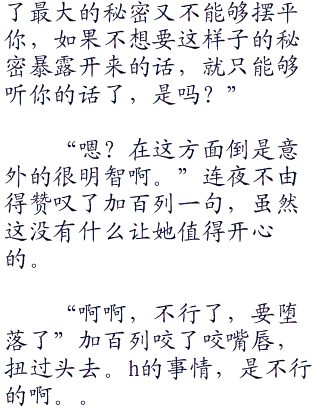 了最大的秘密又不能够摆平
你，如果不想要这样子的秘
密暴露开来的话，就只能够
听你的话了，是吗？”
“嗯？在这方面倒是意
外的很明智啊。”连夜不由
得赞叹了加百列一句，虽然
这没有什么让她值得开心
的。
“啊啊，不行了，要堕
落了”加百列咬了咬嘴唇，
扭过头去。h的事情，是不行
的啊。。